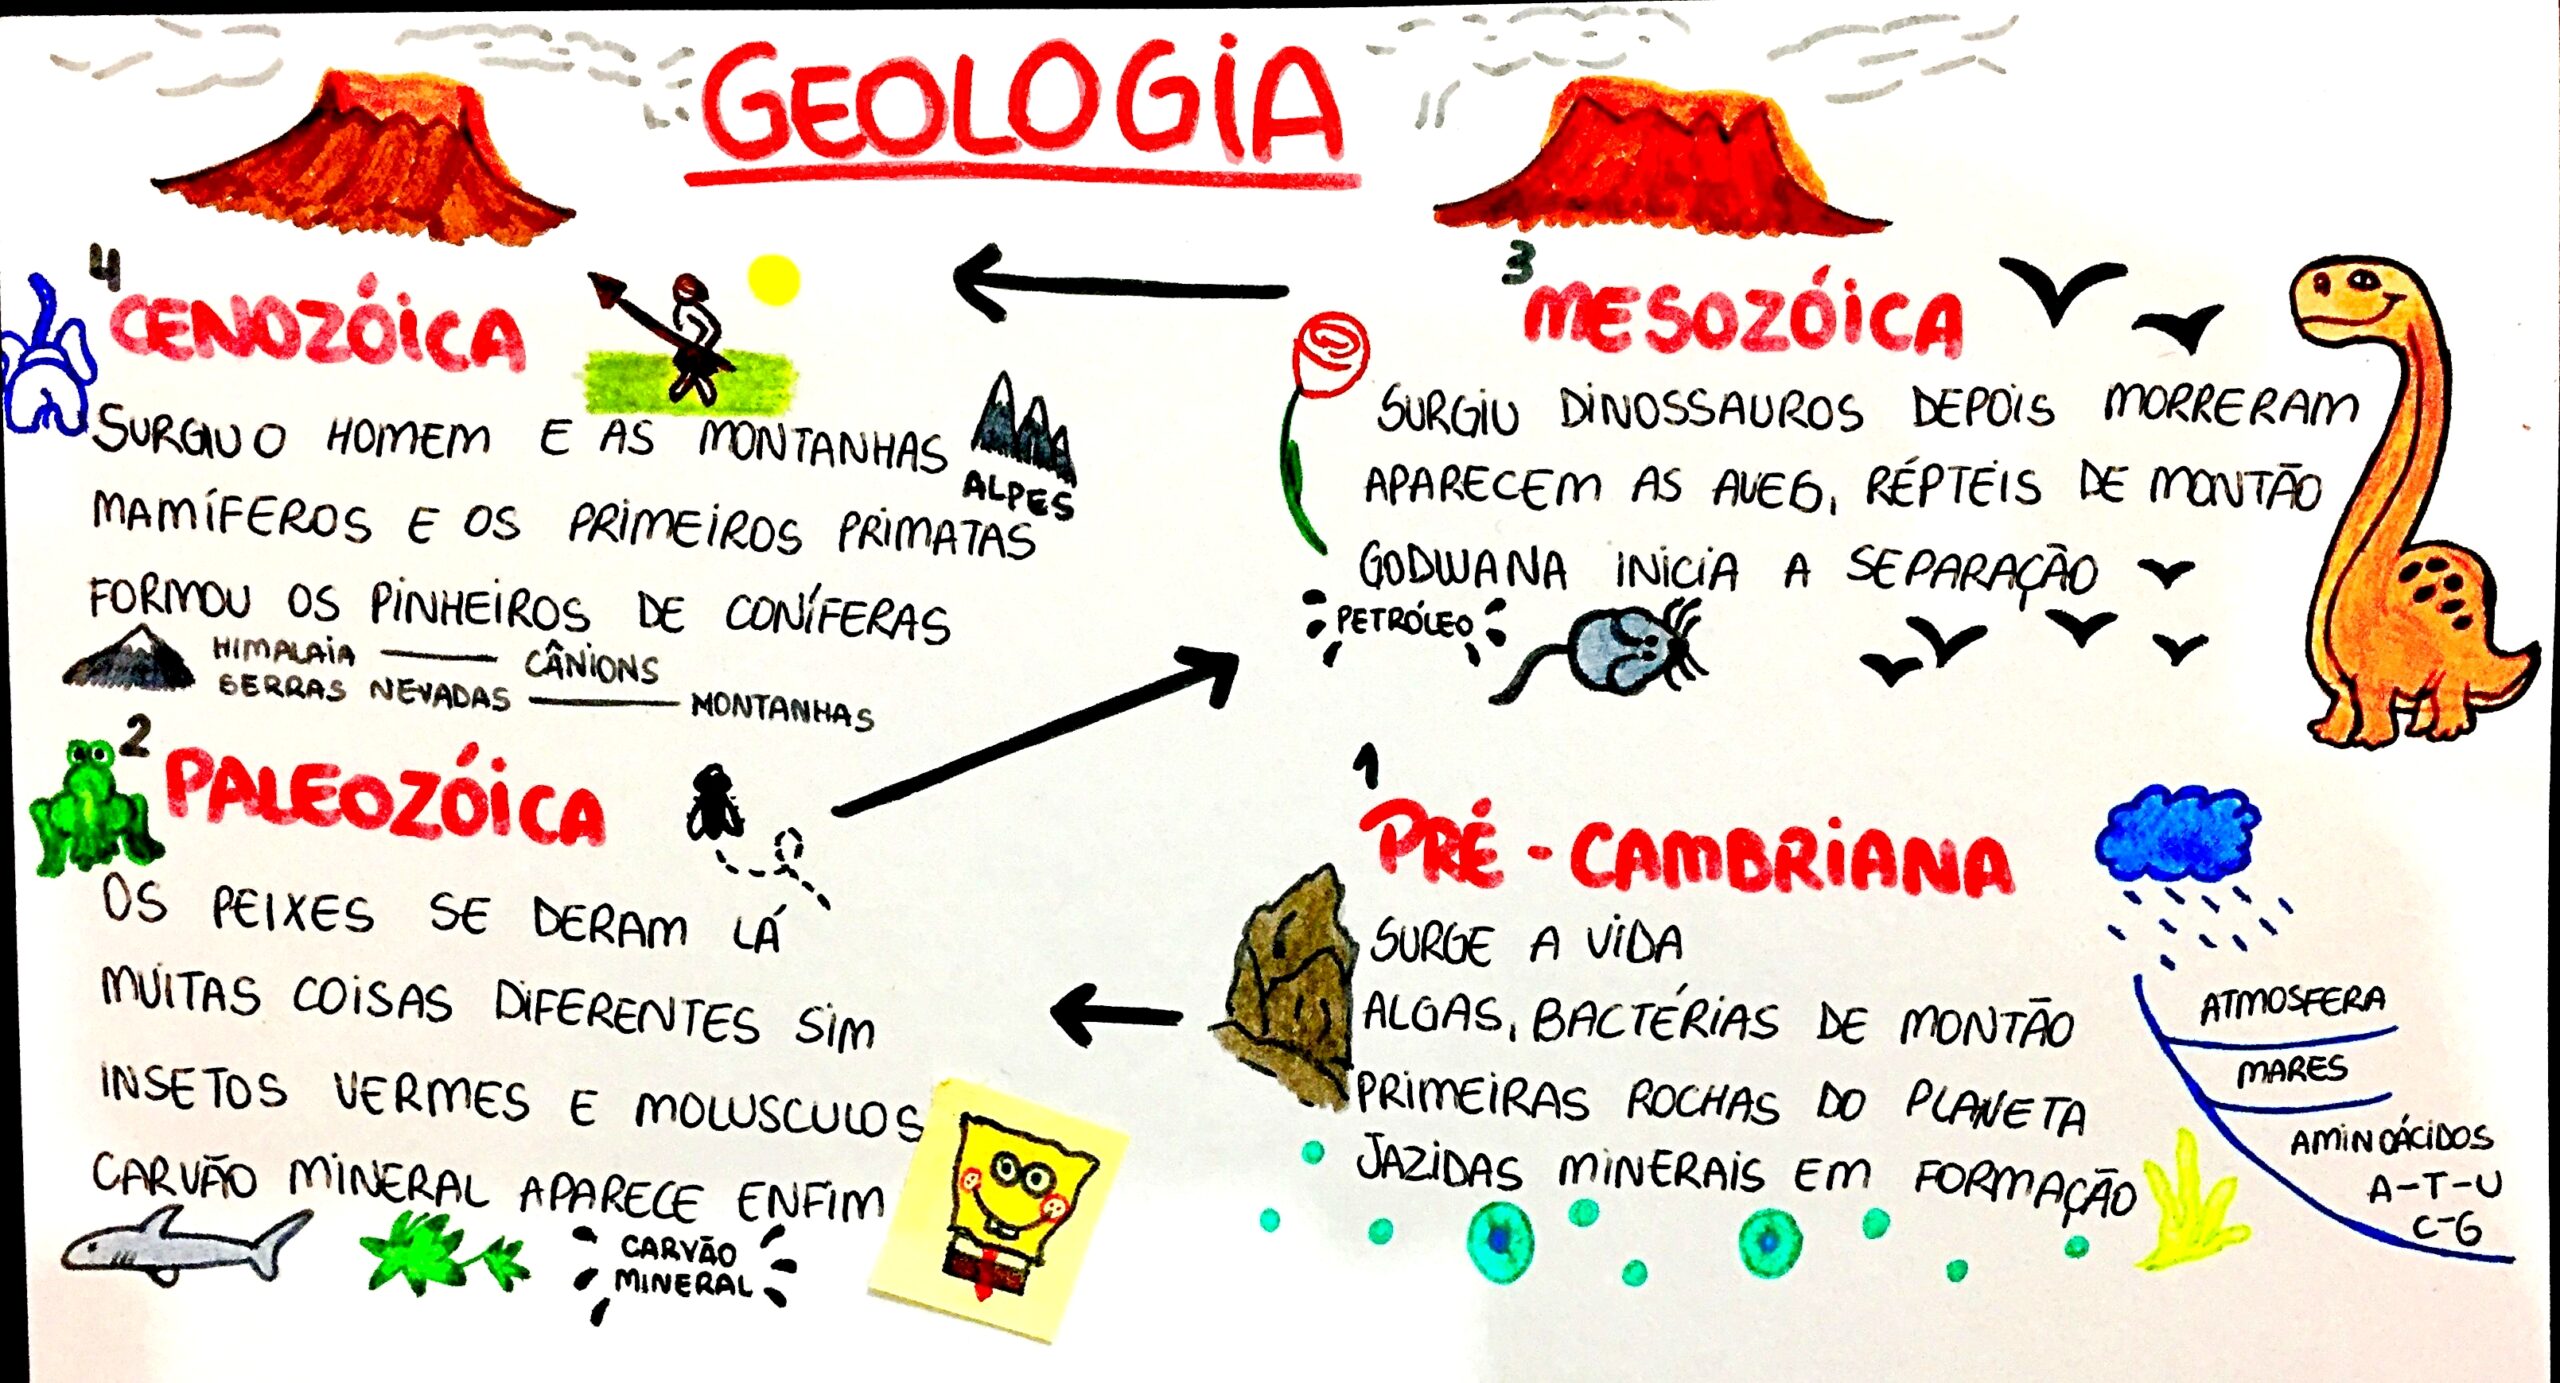 GEOLOGIA
4
CENOZÓICA
SURGIU O HOMEM E AS MONTANHAS
ALPES
MAMÍFEROS E OS PRIMEIROS PRIMATAS
FORMOU OS PINHEIROS DE CONÍFERAS
HIMALAIA — CÂNIONS
SERRAS NEVADAS — MONTANHAS
3
MESOZÓICA
SURGIU DINOSSAUROS DEPOIS MORRERAM
APARECEM AS AVES, RÉPTEIS DE MONTÃO
GODWANA INICIA A SEPARAÇÃO
PETRÓLEO
2
PALEOZÓICA
OS PEIXES SE DERAM LÁ
MUITAS COISAS DIFERENTES SIM
INSETOS VERMES E MOLUSCULOS
CARVÃO MINERAL APARECE ENFIM
CARVÃO
MINERAL
1
PRÉ-CAMBRIANA
SURGE A VIDA
ALGAS, BACTÉRIAS DE MONTÃO
PRIMEIRAS ROCHAS DO PLANETA
JAZIDAS MINERAIS EM FORMAÇÃO
ATMOSFERA
MARES
AMINOÁCIDOS
A-T-U
C-G